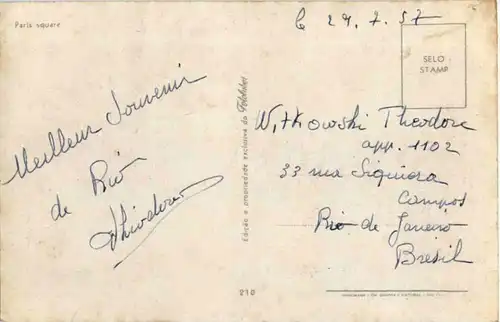 Paris square
le 29.7.57
SELO
STAMP
Meilleur Souvenir
de Rio
Théodore
Edição e propriedade exclusiva da Fotolabor
Witkowski Theodore
app. 1102
33 rua Siquiera
Campos
Rio de Janeiro
Brésil
218